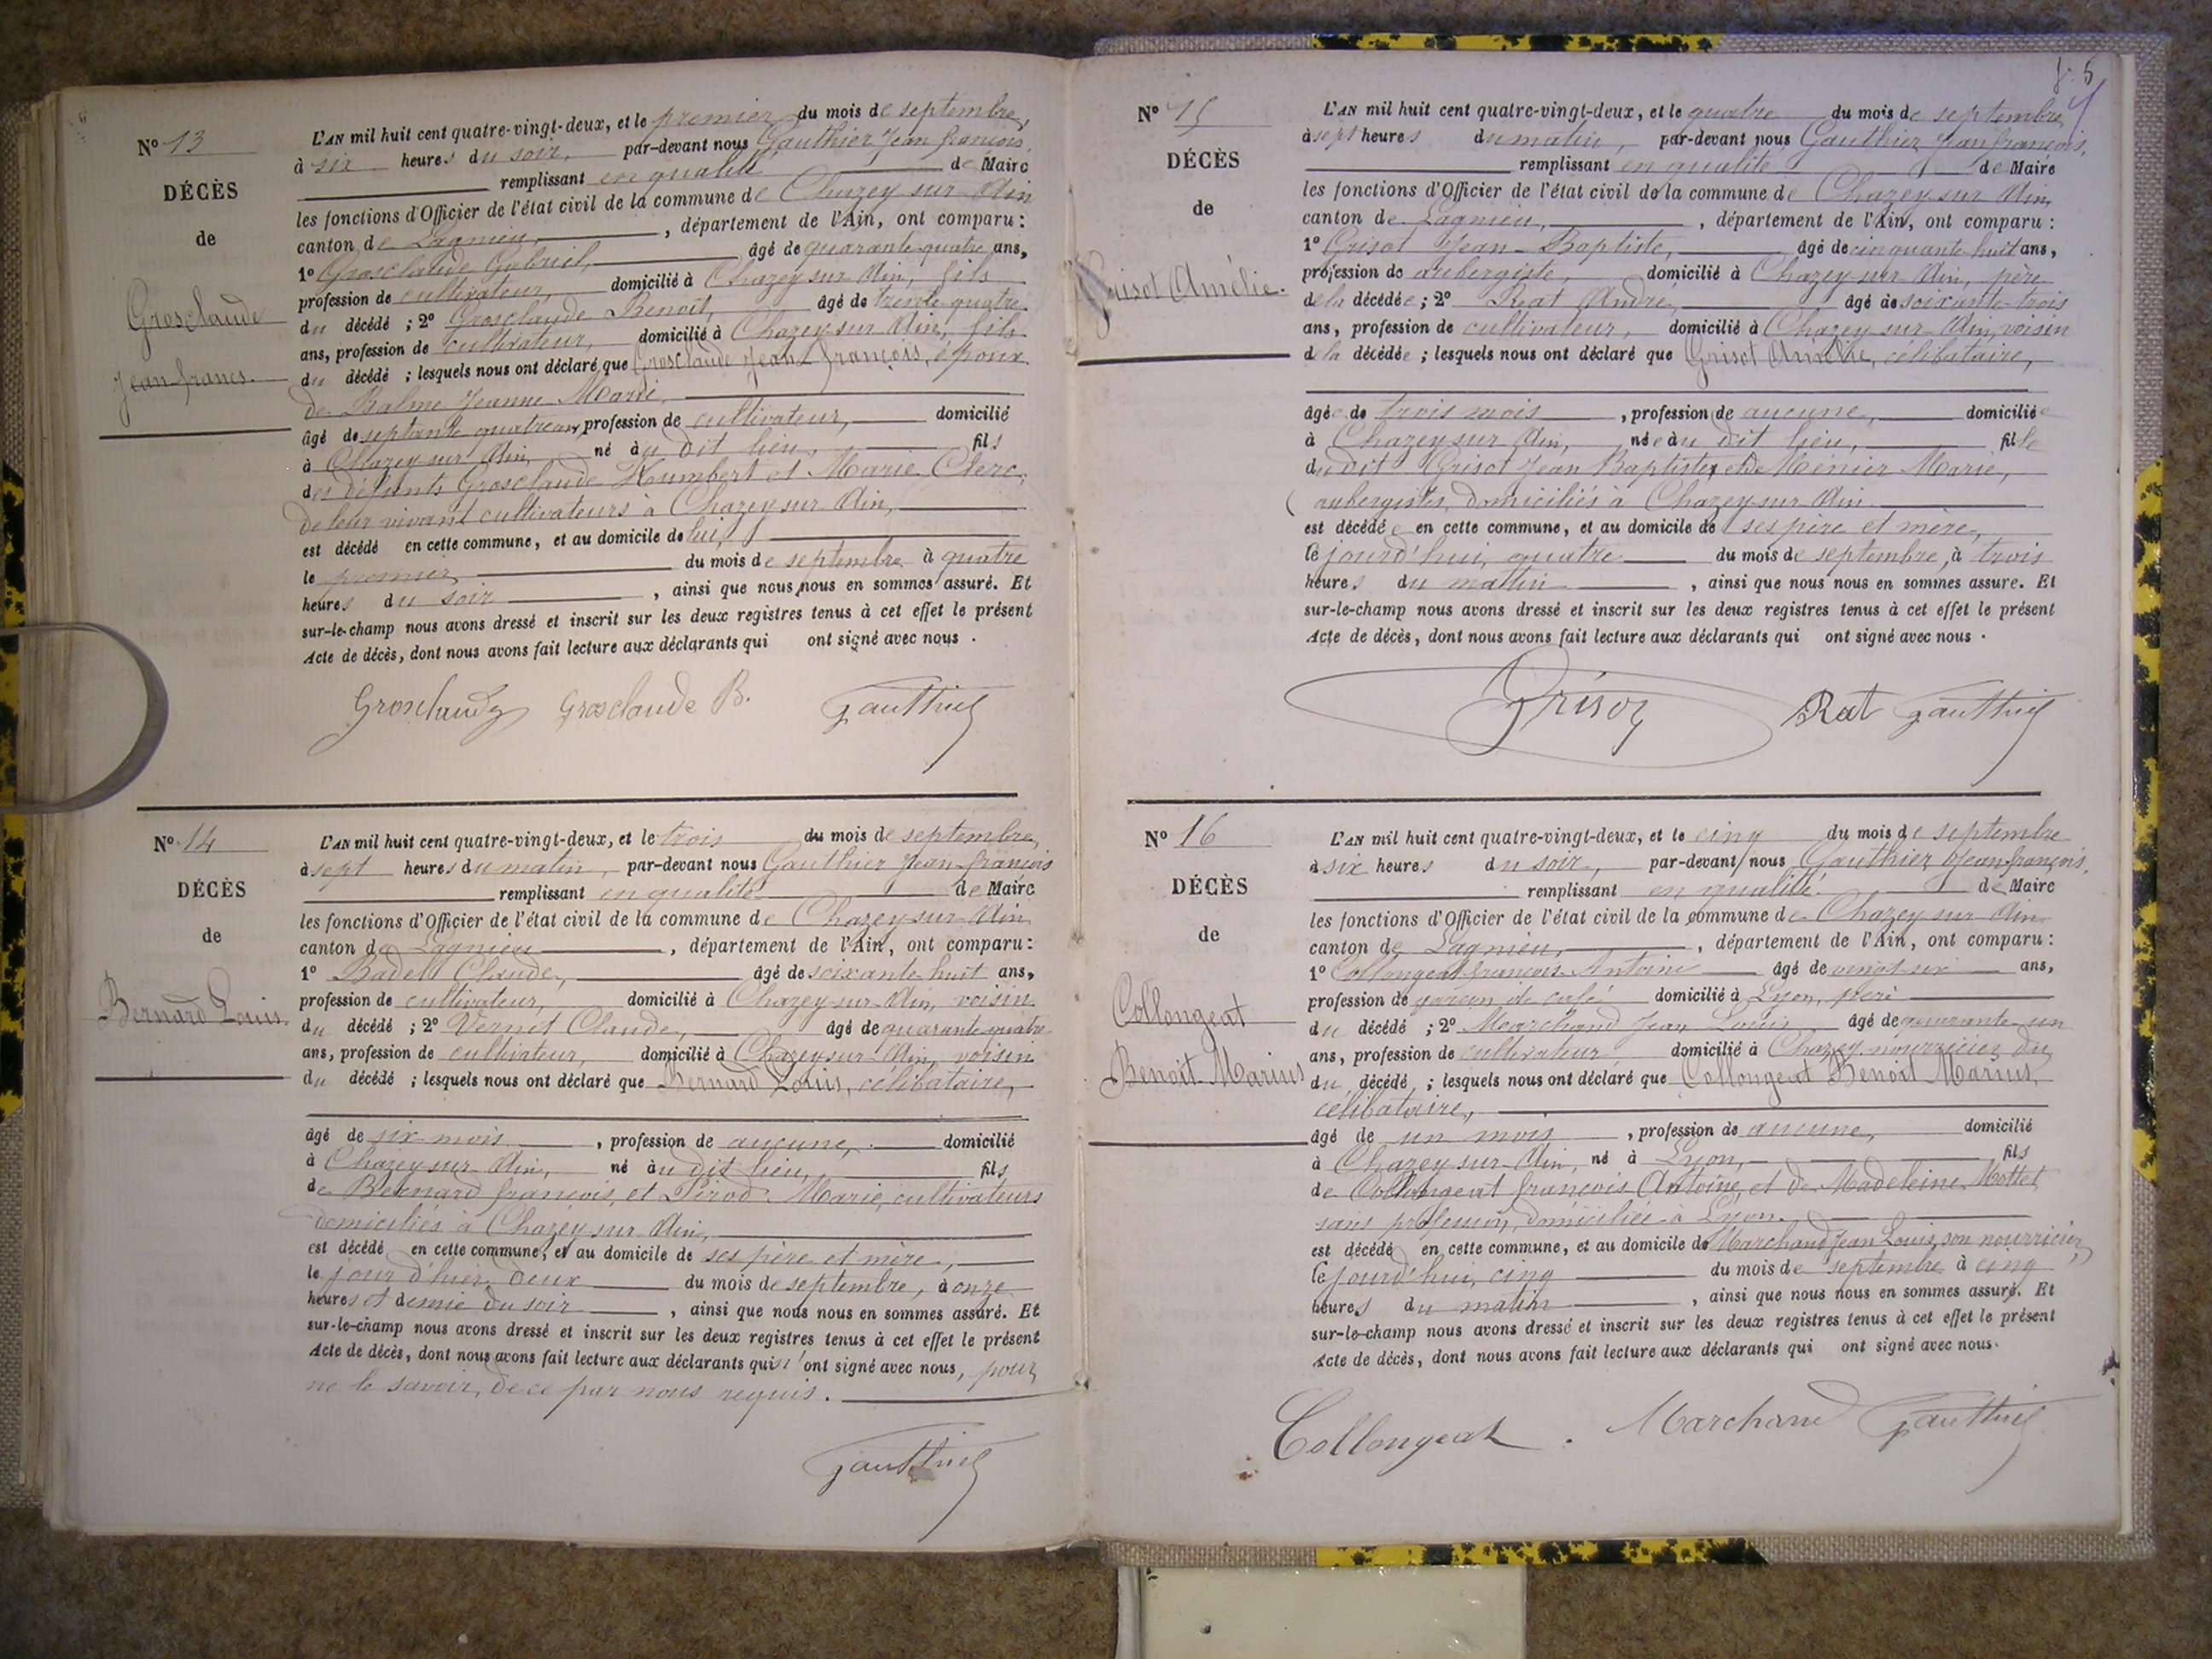 N° 13
DÉCÈS
de
Grosclaude
Jean francs.
L'AN mil huit cent quatre-vingt-deux, et le premier du mois de septembre,
à six heures du soir, par-devant nous Gauthier Jean françois,
remplissant en qualité de Maire
les fonctions d'Officier de l'état civil de la commune de Chazey sur Ain
canton de Lagnieu, , département de l'Ain, ont comparu :
1° Grosclaude Gabriel, âgé de quarante quatre ans,
profession de cultivateur, domicilié à Chazey sur Ain, fils
du décédé ; 2° Grosclaude Benoit, âgé de trente quatre
ans, profession de cultivateur, domicilié à Chazey sur Ain, fils
du décédé ; lesquels nous ont déclaré que Grosclaude Jean françois, époux
de Balme Jeanne Marie,
âgé de septante quatre ans, profession de cultivateur, domicilié
à Chazey sur Ain, né au dit lieu, fils
des défunts Grosclaude Humbert et Marie Clerc,
de leur vivant cultivateurs à Chazey sur Ain,
est décédé en cette commune, et au domicile de lui,
le premier du mois de septembre à quatre
heures du soir , ainsi que nous nous en sommes assuré. Et
sur-le-champ nous avons dressé et inscrit sur les deux registres tenus à cet effet le présent
Acte de décès, dont nous avons fait lecture aux déclarants qui ont signé avec nous .
Grosclaude Grosclaude B. Gauthier
N° 14
DÉCÈS
de
Bernard Louis.
L'AN mil huit cent quatre-vingt-deux, et le trois du mois de septembre,
à sept heures du matin, par-devant nous Gauthier Jean françois
remplissant en qualité de Maire
les fonctions d'Officier de l'état civil de la commune de Chazey sur Ain
canton de Lagnieu , département de l'Ain, ont comparu :
1° Badel Claude, âgé de soixante huit ans,
profession de cultivateur, domicilié à Chazey sur Ain, voisin
du décédé ; 2° Vernet Claude, âgé de quarante quatre
ans, profession de cultivateur, domicilié à Chazey sur Ain, voisin
du décédé ; lesquels nous ont déclaré que Bernard Louis, célibataire,
âgé de six mois , profession de aucune, domicilié
à Chazey sur Ain, né au dit lieu, fils
de Bernard françois, et Pirod Marie, cultivateurs
domiciliés à Chazey sur Ain,
est décédé en cette commune, et au domicile de ses père et mère,
le jour d'hier deux du mois de septembre, à onze
heures et demie du soir , ainsi que nous nous en sommes assuré. Et
sur-le-champ nous avons dressé et inscrit sur les deux registres tenus à cet effet le présent
Acte de décès, dont nous avons fait lecture aux déclarants qui n'ont signé avec nous, pour
ne le savoir, de ce par nous requis.
Gauthier
5
N° 15
DÉCÈS
de
Grisot Amélie.
L'AN mil huit cent quatre-vingt-deux, et le quatre du mois de septembre,
à sept heures du matin, par-devant nous Gauthier Jean françois,
remplissant en qualité de Maire
les fonctions d'Officier de l'état civil de la commune de Chazey sur Ain,
canton de Lagnieu, , département de l'Ain, ont comparu :
1° Grisot Jean-Baptiste, âgé de cinquante huit ans,
profession de aubergiste, domicilié à Chazey sur Ain, père
de la décédée ; 2° Rat André, âgé de soixante-trois
ans, profession de cultivateur, domicilié à Chazey sur Ain, voisin
de la décédée ; lesquels nous ont déclaré que Grisot Amélie, célibataire,
âgée de trois mois , profession de aucune, domiciliée
à Chazey sur Ain, née au dit lieu, fille
du dit Grisot Jean Baptiste, et de Ménier Marie,
aubergistes, domiciliés à Chazey sur Ain
est décédée en cette commune, et au domicile de ses père et mère,
le jourd'hui, quatre du mois de septembre, à trois
heures du matin , ainsi que nous nous en sommes assuré. Et
sur-le-champ nous avons dressé et inscrit sur les deux registres tenus à cet effet le présent
Acte de décès, dont nous avons fait lecture aux déclarants qui ont signé avec nous .
Grisot Rat Gauthier
N° 16
DÉCÈS
de
Collongeat
Benoit Marius
L'AN mil huit cent quatre-vingt-deux, et le cinq du mois de septembre
à six heures du soir, par-devant nous Gauthier Jean françois,
remplissant en qualité de Maire
les fonctions d'Officier de l'état civil de la commune de Chazey sur Ain
canton de Lagnieu, , département de l'Ain, ont comparu :
1° Collongeat françois Antoine âgé de vingt six ans,
profession de garçon de café domicilié à Lyon, père
du décédé ; 2° Marchand Jean Louis âgé de quarante un
ans, profession de cultivateur domicilié à Chazey nourricier du
du décédé ; lesquels nous ont déclaré que Collongeat Benoit Marius,
célibataire,
âgé de un mois , profession de aucune, domicilié
à Chazey sur Ain, né à Lyon, fils
de Collongeat françois Antoine, et de Madeleine Mottet
sans profession, domiciliés à Lyon.
est décédé en cette commune, et au domicile de Marchand Jean Louis, son nourricier,
le jourd'hui, cinq du mois de septembre à cinq
heures du matin , ainsi que nous nous en sommes assuré. Et
sur-le-champ nous avons dressé et inscrit sur les deux registres tenus à cet effet le présent
Acte de décès, dont nous avons fait lecture aux déclarants qui ont signé avec nous.
Collongeat . Marchand Gauthier